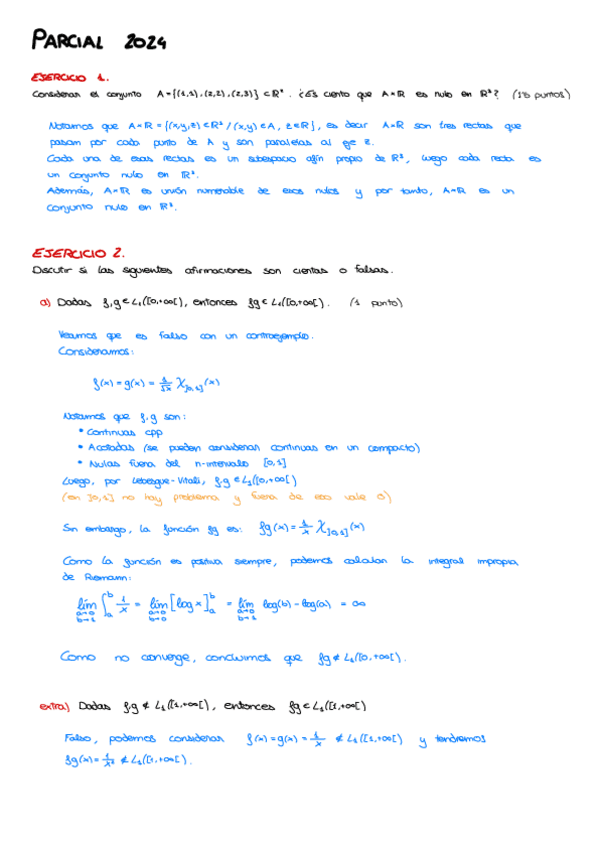 PARCIAL 2024
EJERCICIO 1.
Considerar el conjunto A={(1,1),(2,2),(2,3)} ⊂ ℝ². ¿Es cierto que A×ℝ es nulo en ℝ³? (1'5 puntos)
Notamos que A×ℝ = {(x,y,z) ∈ ℝ³ / (x,y) ∈ A, z ∈ ℝ}, es decir A×ℝ son tres rectas que
pasan por cada punto de A y son paralelas al eje z.
Cada una de esas rectas es un subespacio afín propio de ℝ³, luego cada recta es
un conjunto nulo en ℝ³.
Además, A×ℝ es unión numerable de esos nulos y por tanto, A×ℝ es un
conjunto nulo en ℝ³.
EJERCICIO 2.
Discutir si las siguientes afirmaciones son ciertas o falsas.
a) Dadas f,g ∈ L₁([0,+∞[), entonces fg ∈ L₁([0,+∞[). (1 punto)
Veamos que es falso con un contraejemplo.
Consideramos:
f(x) = g(x) = 1/√x χ]0,1](x)
Notamos que f,g son:
• Continuas cpp
• Acotadas (se pueden considerar continuas en un compacto)
• Nulas fuera del n-intervalo [0,1]
Luego, por Lebesgue-Vitali, f,g ∈ L₁([0,+∞[)
(en ]0,1] no hay problema y fuera de eso vale 0)
Sin embargo, la función fg es: fg(x) = 1/x χ]0,1](x)
Como la función es positiva siempre, podemos calcular la integral impropia
de Riemann:
lim a→0 b→1 ∫ₐᵇ 1/x = lim a→0 b→1 [log x]ₐᵇ = lim a→0 b→1 log(b) - log(a) = ∞
Como no converge, concluimos que fg ∉ L₁([0,+∞[).
extra) Dadas f,g ∉ L₁([1,+∞[), entonces fg ∈ L₁([1,+∞[)
Falso, podemos considerar f(x) = g(x) = 1/x ∉ L₁([1,+∞[) y tendremos
fg(x) = 1/x² ∉ L₁([1,+∞[).